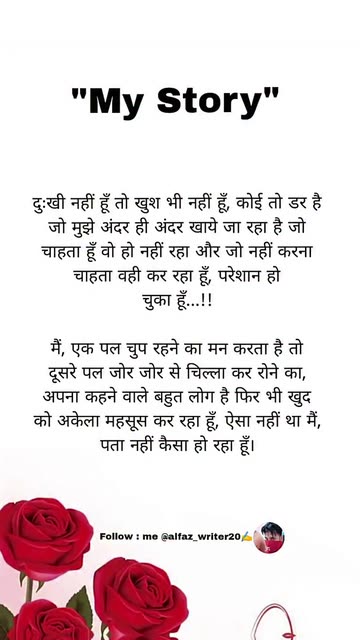 "My Story"
दुःखी नहीं हूँ तो खुश भी नहीं हूँ, कोई तो डर है
जो मुझे अंदर ही अंदर खाये जा रहा है जो
चाहता हूँ वो हो नहीं रहा और जो नहीं करना
चाहता वही कर रहा हूँ, परेशान हो
चुका हूँ...!!
मैं, एक पल चुप रहने का मन करता है तो
दूसरे पल जोर जोर से चिल्ला कर रोने का,
अपना कहने वाले बहुत लोग है फिर भी खुद
को अकेला महसूस कर रहा हूँ, ऐसा नहीं था मैं,
पता नहीं कैसा हो रहा हूँ।
Follow : me @alfaz_writer20✍️